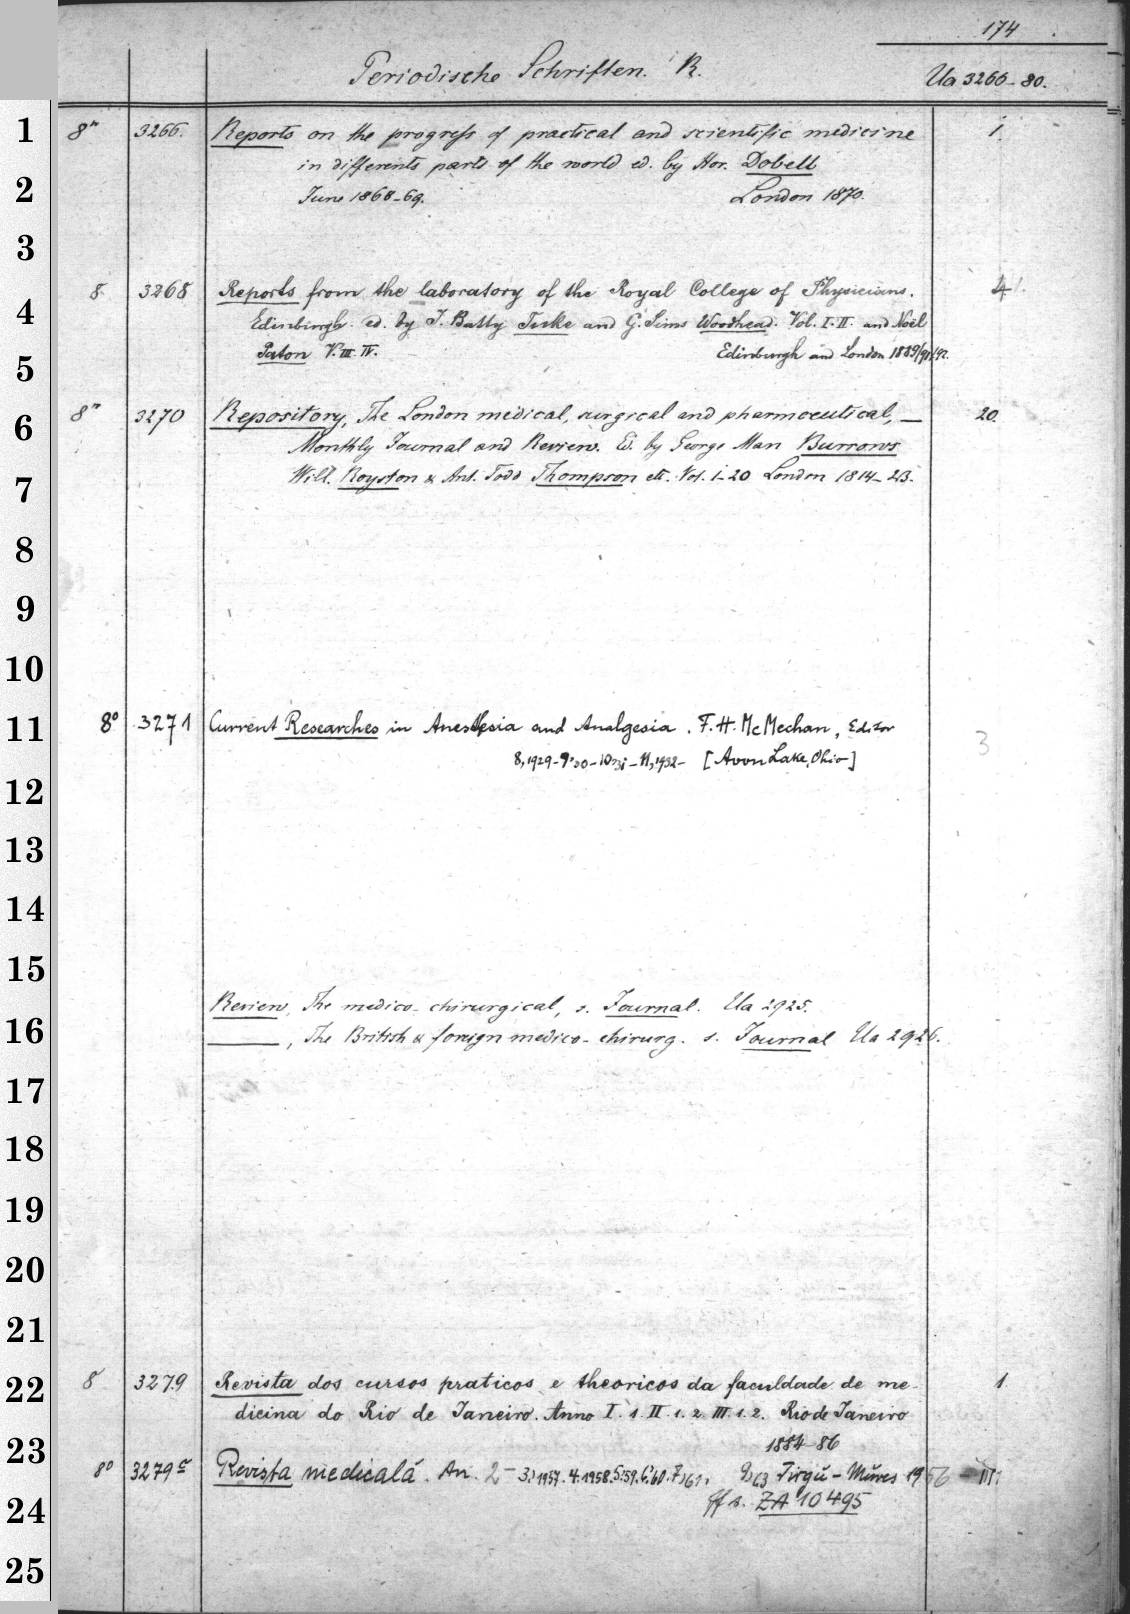 174
Periodische Schriften. R.
Ua 3266-80.
1
8° 3266. Reports on the progress of practical and scientific medicine 1.
in differents parts of the world ed. by Hor. Dobell
2
June 1868-69. London 1870.
3
8 3268 Reports from the laboratory of the Royal College of Physicians. 4
4
Edinburgh. ed. by J. Batty Tuke and G. Sims Woodhead. Vol. I. II. and Noël
5
Paton V. III. IV. Edinburgh and London 1889/91/92.
6
8° 3270 Repository, The London medical, surgical and pharmaceutical, — 20.
Monthly Journal and Review. Ed. by George Man Burrows
7
Will. Royston & Ant. Todd Thompson etc. Vol. 1-20 London 1814-23.
8
9
10
11
8° 3271 Current Researches in Anesthesia and Analgesia. F. H. McMechan, Editor 3
8, 1929-9,30-10,31-11, 1932- [Avon Lake, Ohio]
12
13
14
15
Review, The medico-chirurgical, s. Journal. Ua 2925.
16
——, The British & foreign medico-chirurg. s. Journal Ua 2926.
17
18
19
20
21
22
8 3279 Revista dos cursos praticos e theoricos da faculdade de me- 1.
dicina do Rio de Janeiro. Anno I. 1. II. 1. 2. III. 1. 2. Rio de Janeiro
23
1884-86
8° 3279c Revista medicală. An. 2- 3,1957. 4.1958. 5,59. 6,60. 7,61, 9,63 Tîrgŭ-Mŭres 1956- III.
24
ff s. ZA 10495
25